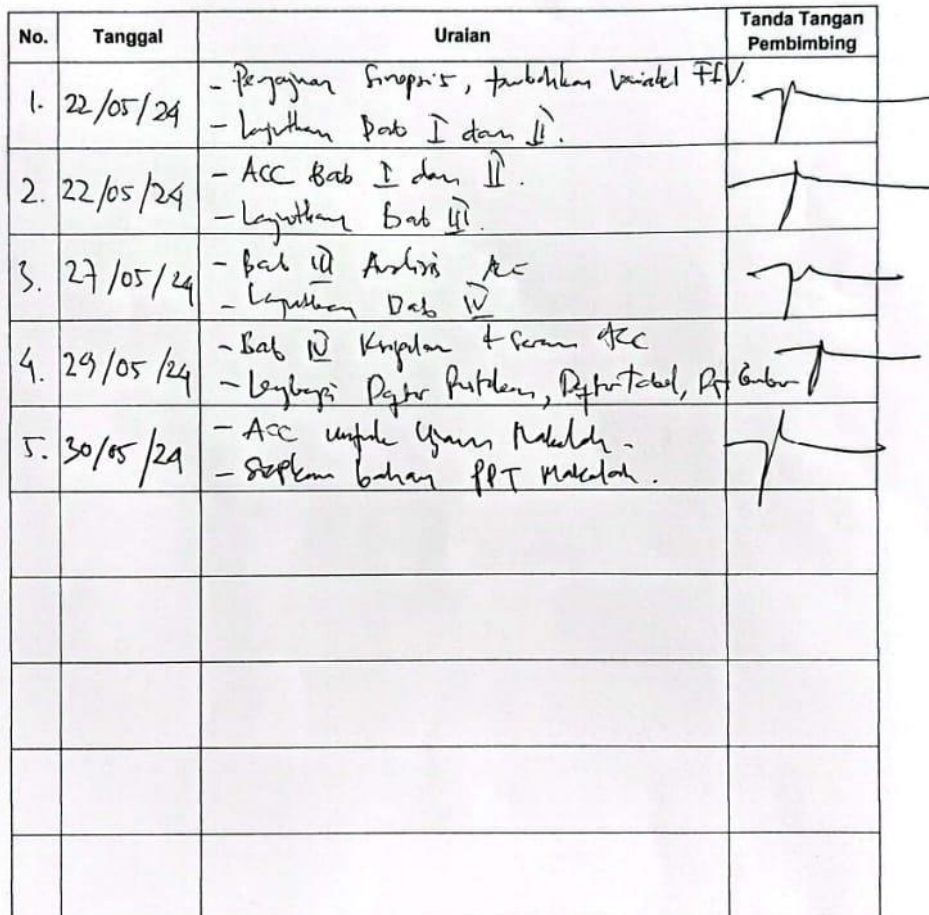 No. Tanggal Uraian Tanda Tangan Pembimbing
1. 22/05/24
- Pengajuan Sinopsis, tambahkan Variabel
- Lanjutkan Bab I dan II.
2. 22/05/24
- ACC Bab I dan II.
- Lanjutkan Bab III.
3. 27/05/24
- Bab III Analisis Acc
- Lanjutkan Bab IV
4. 29/05/24
- Bab IV + Saran Acc
- Lengkapi Daftar Pustaka, Daftar Tabel, Gambar
5. 30/05/24
- ACC untuk Ujian Makalah.
- Siapkan bahan PPT Makalah.